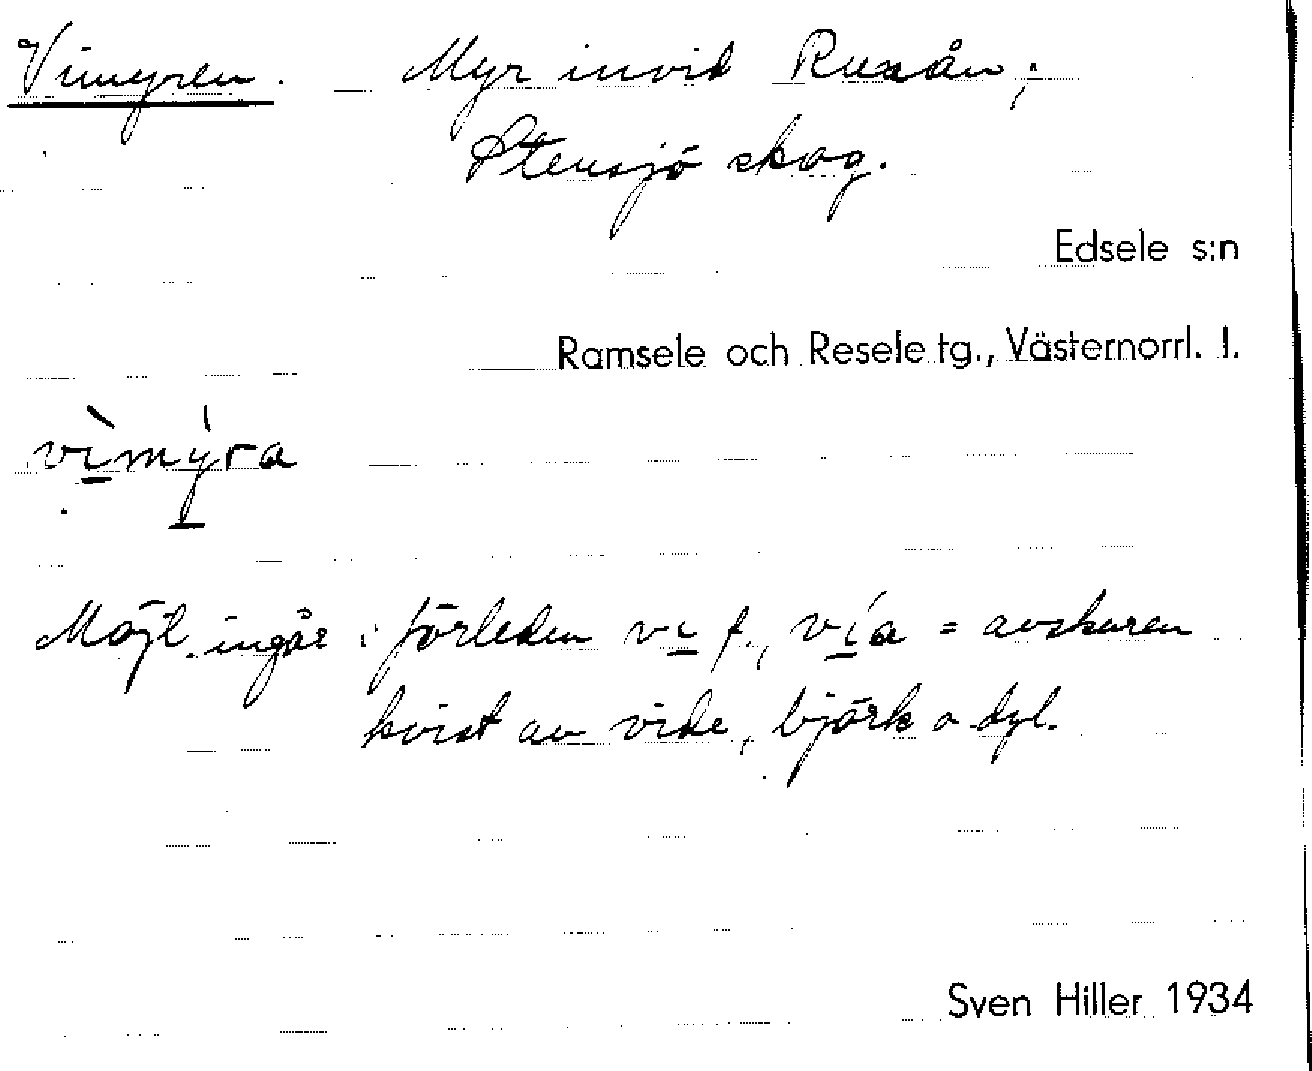 Vimyren. Myr invid Ruxån;
Stensjö skog.
Edsele s:n
Ramsele och Resele tg., Västernorrl. l.
vı̀mýra
Möjl. ingår i förleden vı f., vía = avskuren
kvist av vide, björk o dyl.
Sven Hiller 1934